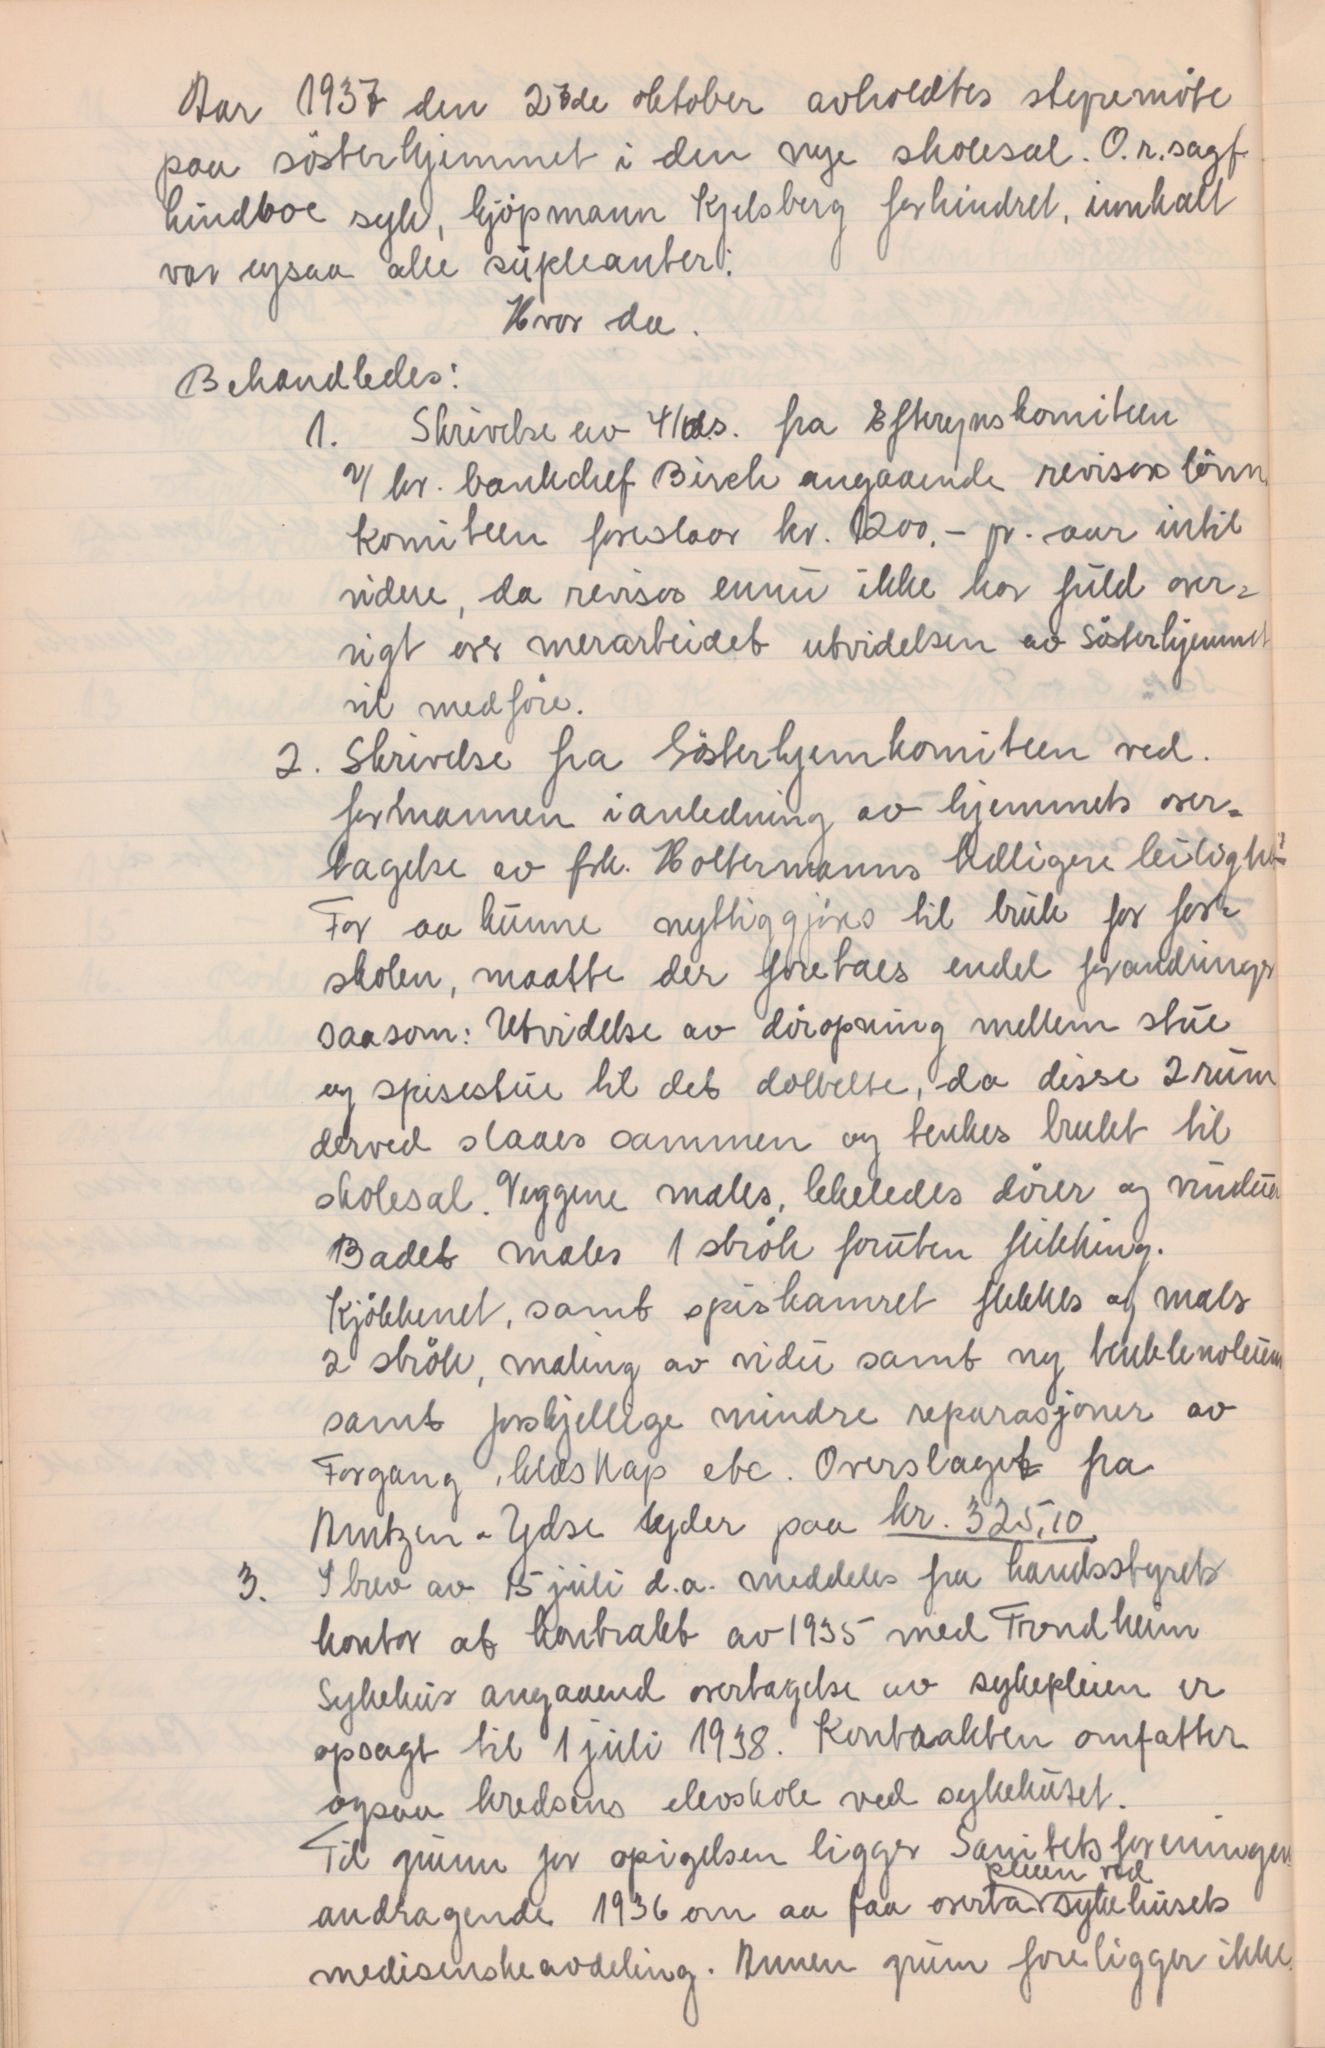 Aar 1937 den 27de oktober avholdtes styremöte
paa sösterhjemmet i den nye skolesal. O.r.sagf.
Lindboe syk, kjöpmann Kjelsberg forhindret, innkalt
var ogsaa alle supleanter:
Hvor da.
Behandledes:
1. Skrivelse av 4/ ds. fra Eftersynskomiteen
v/ hr. bankchef Birch angaaende revisors lönn,
Komiteen foreslaar kr. 1200,- pr. aar intil
videre, da revisor ennu ikke har fuld over-
sigt over merarbeidet utvidelsen av Sösterhjemmet
vil medföre.
2. Skrivelse fra Sösterhjemkomiteen ved.
formannen i anledning av hjemmets over-
tagelse av frk. Holtermanns tidligere leilighet.
For aa kunne nyttiggjöres til bruk for for-
skolen, maatte der foretaes endel forandringer
saasom: Utvidelse av döropning mellem stue
og spisestue til det dobbelte, da disse 2 rum
derved slaaes sammen og tenkes brukt til
skolesal. Veggene males, likeledes dörer og vinduer
Badet males 1 strök foruten flikking.
Kjökkenet, samt spiskamret flikkes og males
2 strök, maling av vidu samt ny benklinoleum
samt forskjellige mindre reparasjoner av
Forgang, kleskap etc. Overslaget fra
Arntzen & Ydse lyder paa kr. 325,10
3. I brev av 15 juli d.a. meddeles fra Landsstyrets
kontor at kontrakt av 1935 med Trondheim
Sykehus angaaend overtagelse av sykepleien er
opsagt til 1 juli 1938. Kontrakten omfatter
ogsaa kredsens elevskole ved sykehuset.
Til grunn for opsigelsen ligger Sanitetsforeningens
andragende 1936 om aa faa overta pleien ved sykehusets
medisenske avdeling. Annen grunn foreligger ikke.